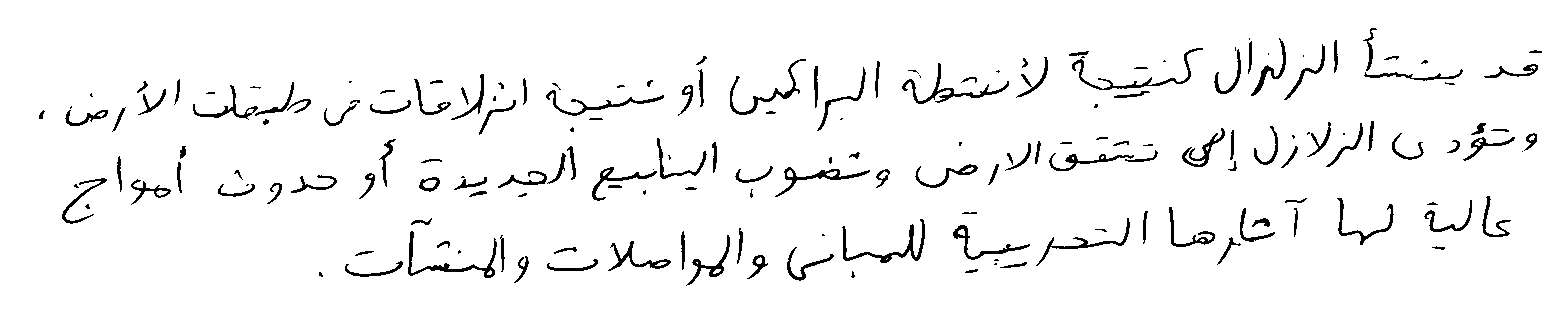 قد ينشأ الزلزال كنتيجة لأنشطة البراكين أو نتيجة انزلاقات في طبقات الأرض ،
وتؤدى الزلازل إلى تشقق الارض ونضوب الينابيع الجديدة أو حدوث أمواج
عالية لها آثارها التخريبية للمبانى والمواصلات والمنشآت .